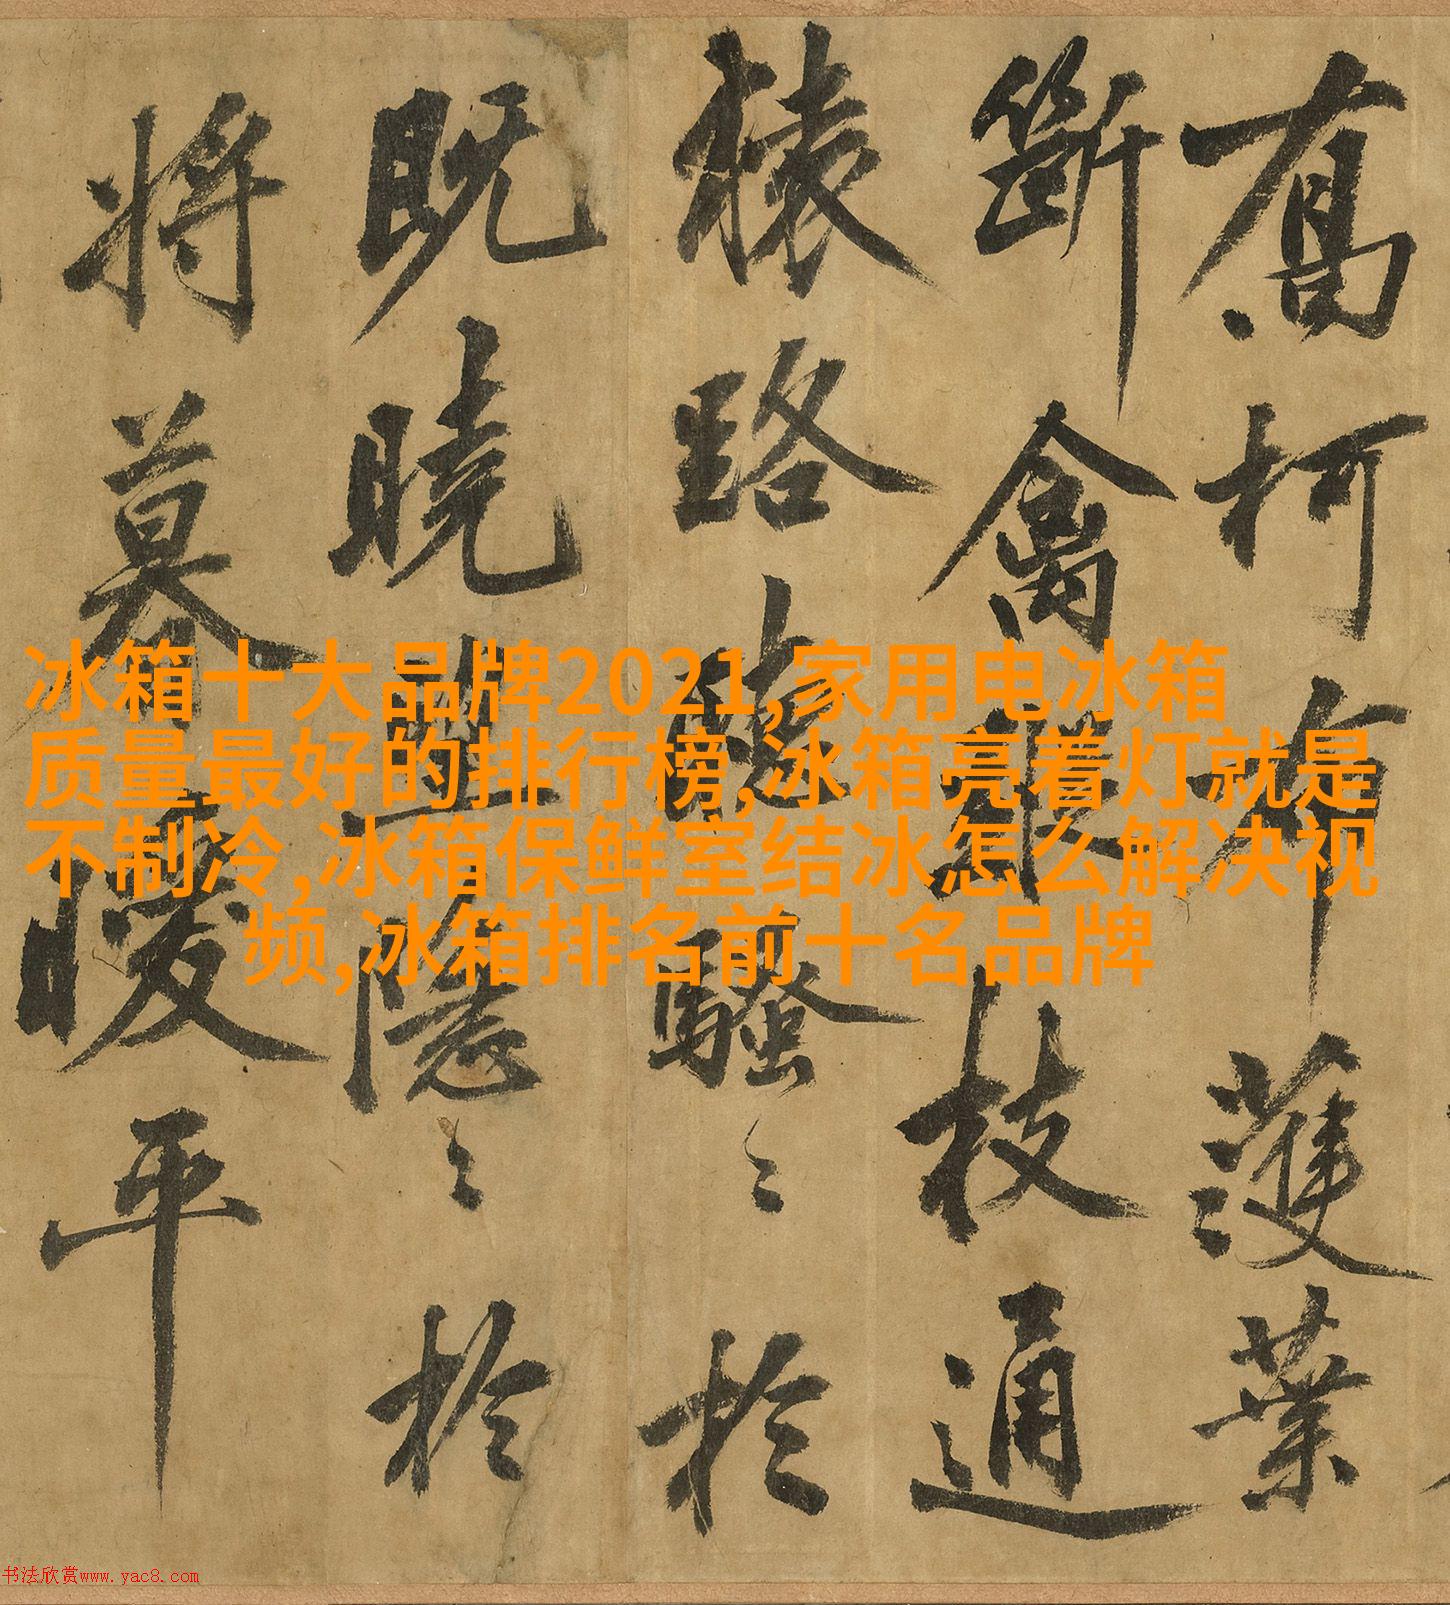 喬柯布濩葉
斷禽蹤枝通
猿路聽騷〻於
既曉望隱〻於
將暮曖平
冰箱十大品牌2021,家用电冰箱
质量最好的排行榜,冰箱亮着灯就是
不制冷,冰箱保鲜室结冰怎么解决视
频,冰箱排名前十名品牌
书法欣赏www.yac8.com